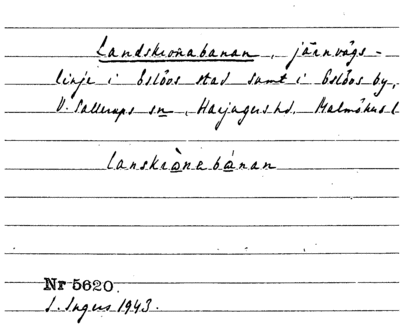 Landskronabanan, järnvägs-
linje i Eslövs stad samt i Eslövs by,
V. Sallerups sn, Harjagers hd, Malmöhus l
lanskrònabánan
Nr 5620.
I. Ingers 1943.